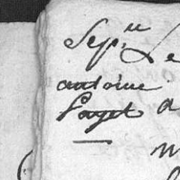 Sep.re Le
antoine
Paget a
m